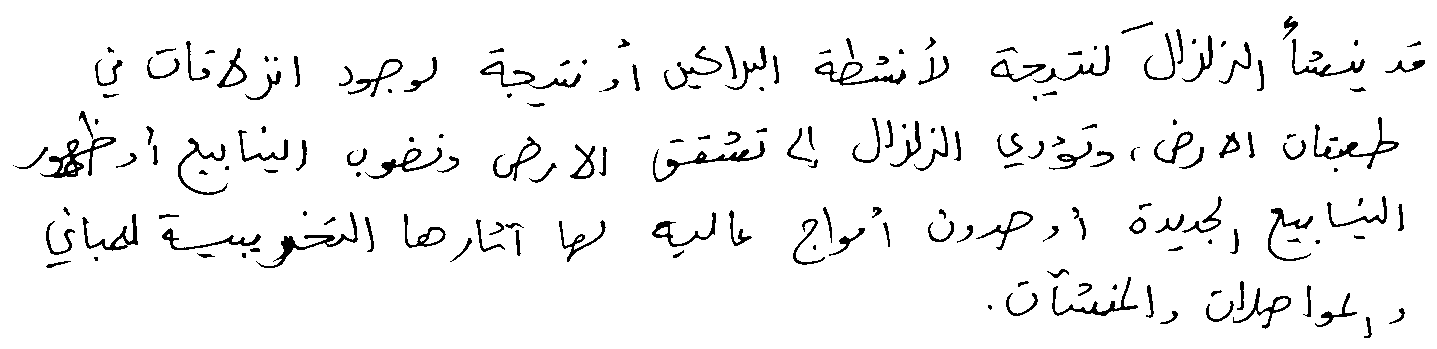 قد ينشأ الزلزال كنتيجة لأنشطة البراكين أو نتيجة لوجود انزلاقات في
طبقات الارض، وتؤدي الزلزال إلى تشقق الارض ونضوب الينابيع أو ظهور
الينابيع الجديدة أو حدوث أمواج عاليه لها آثارها التخريبية للمباني
والمواصلات والمنشآت.